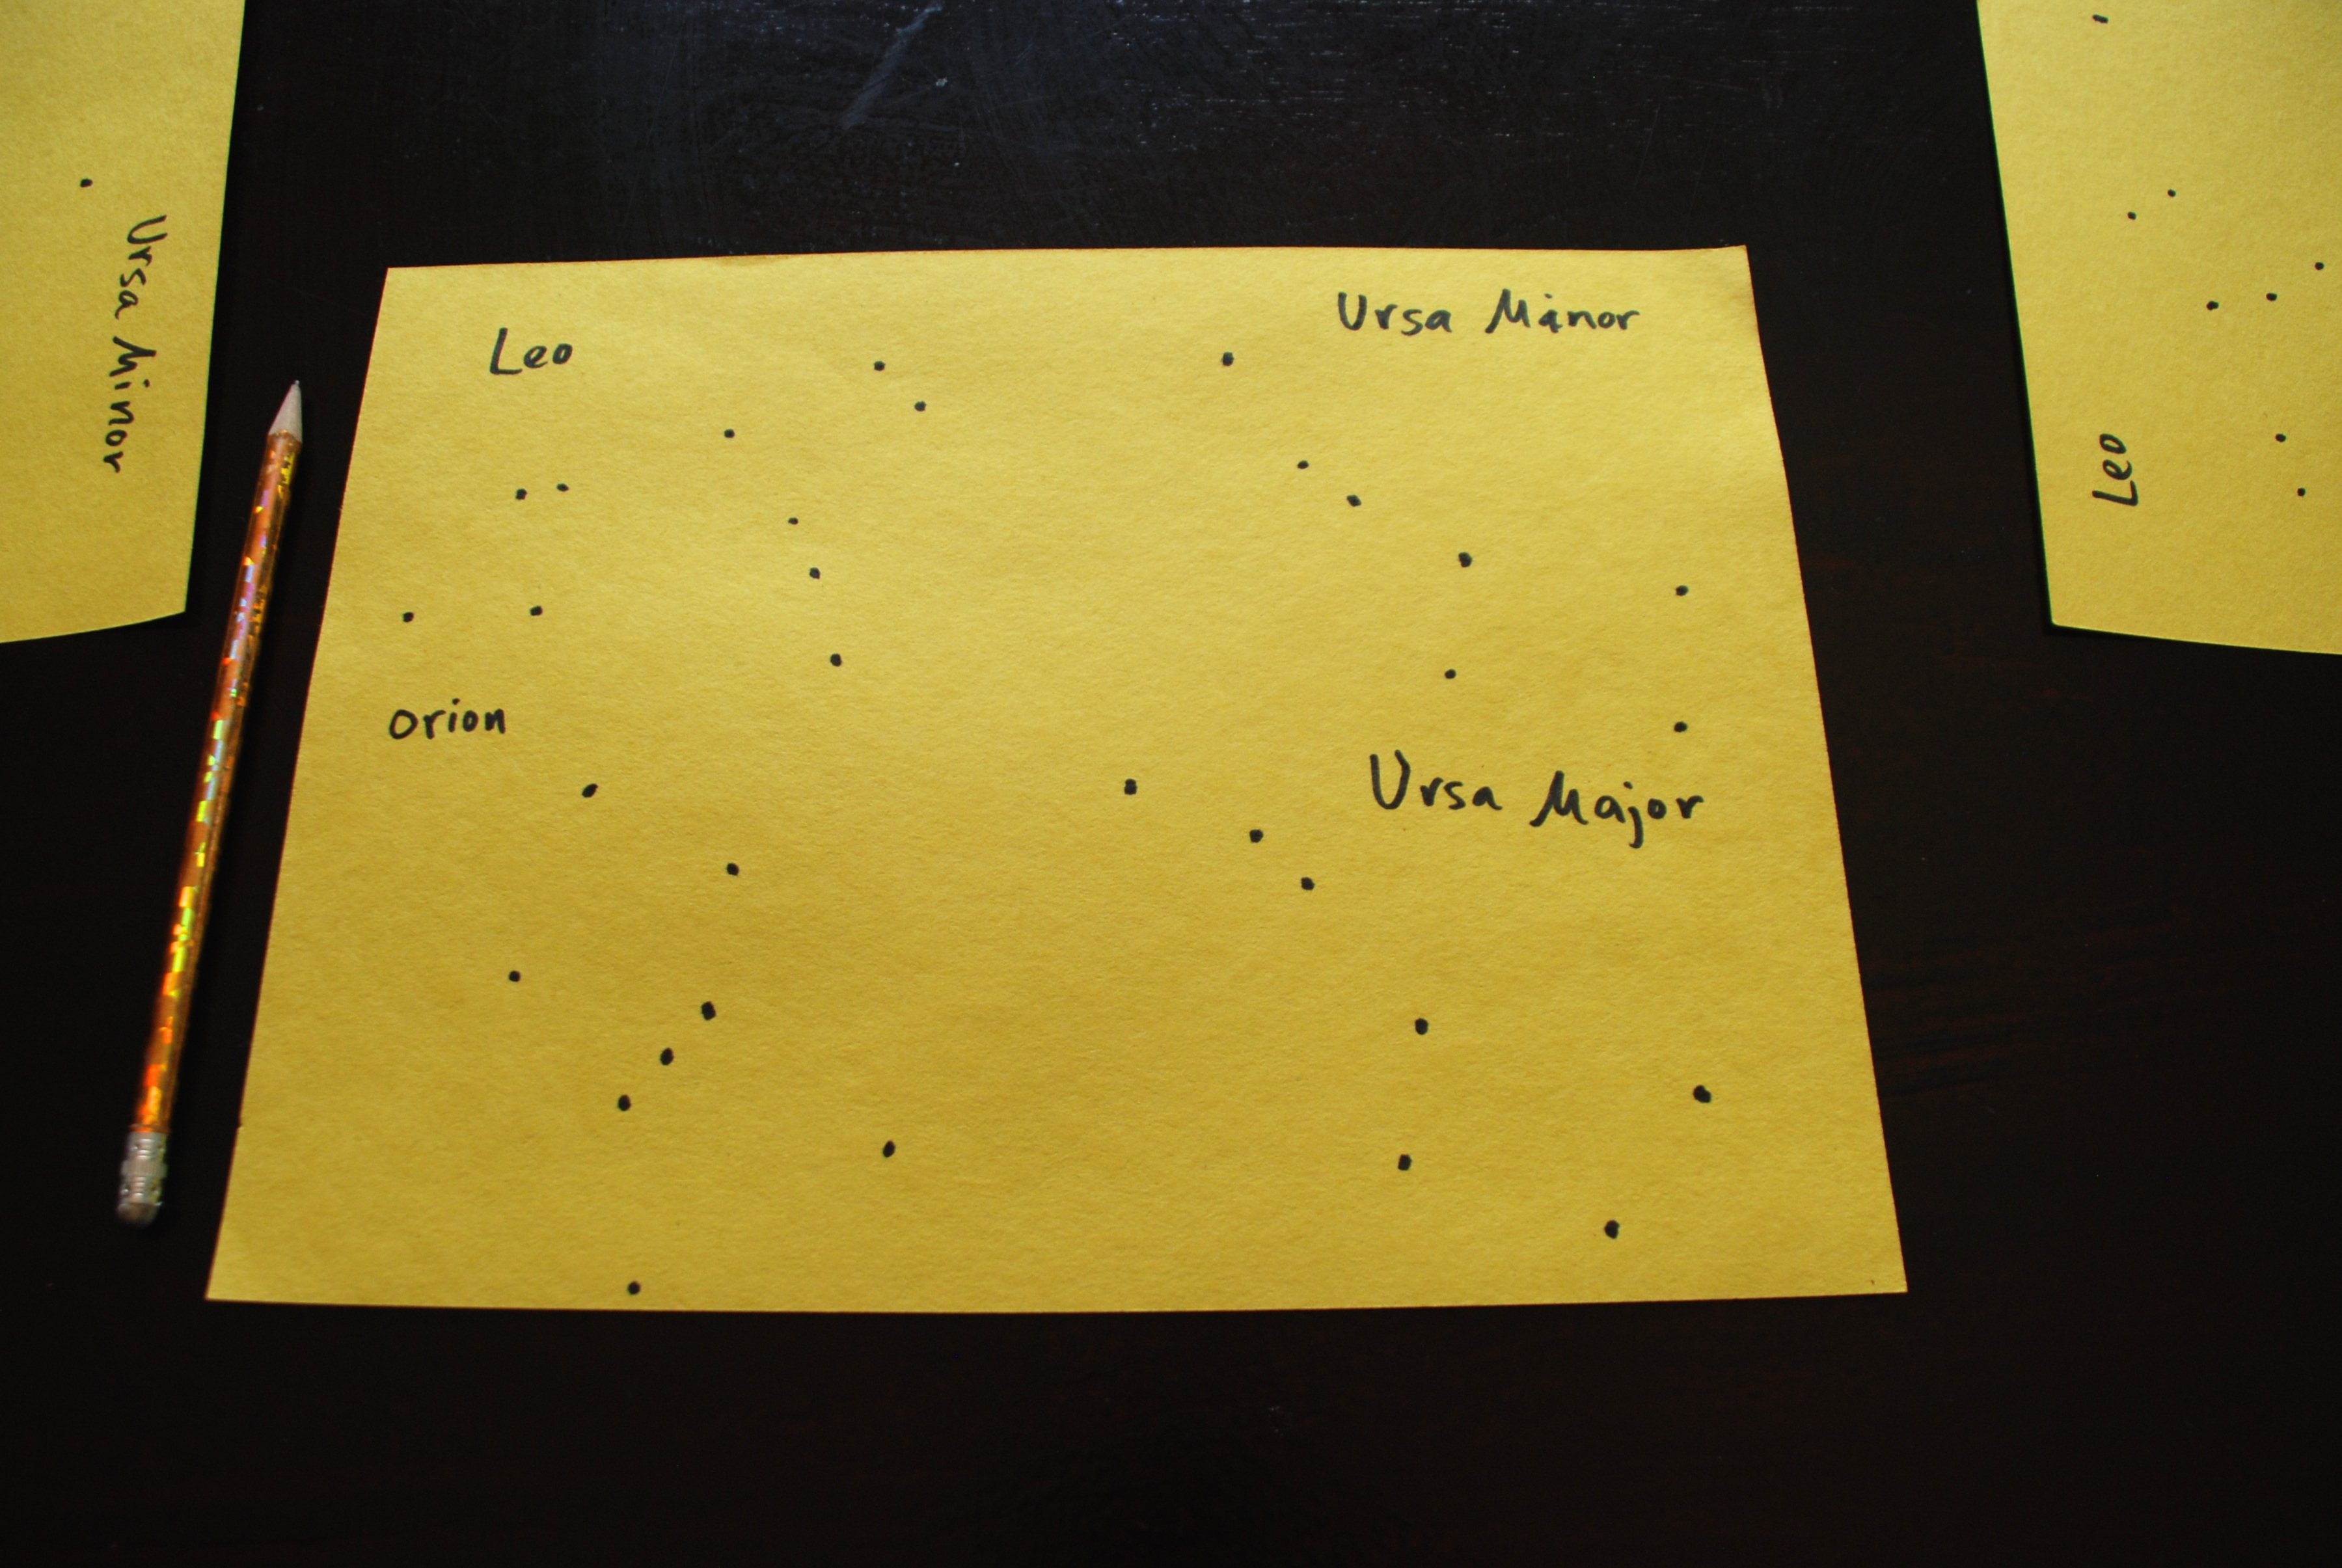 Leo
Ursa Minor
orion
Ursa Major
Ursa Minor
Leo